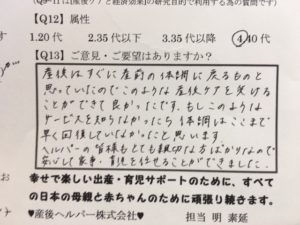 【Q12】属性
1.20代 2.35代以下 3.35代以降 4.40代
【Q13】ご意見・ご要望はありますか?
産後はすぐに産前の体調に戻るものと
思っていたので このような産後ケアを受ける
ことができて良かったです。もしこのような
サービスを知らなかったら 体調はここまで
早く回復していなかったと思います。
ヘルパーの皆様もとても親切な方ばかりなので
安心して家事・育児を任せることができました。
幸せで楽しい出産・育児サポートのために、すべて
の日本の母親と赤ちゃんのために頑張り続きます。
♥産後ヘルパー株式会社♥ 担当 明 素延